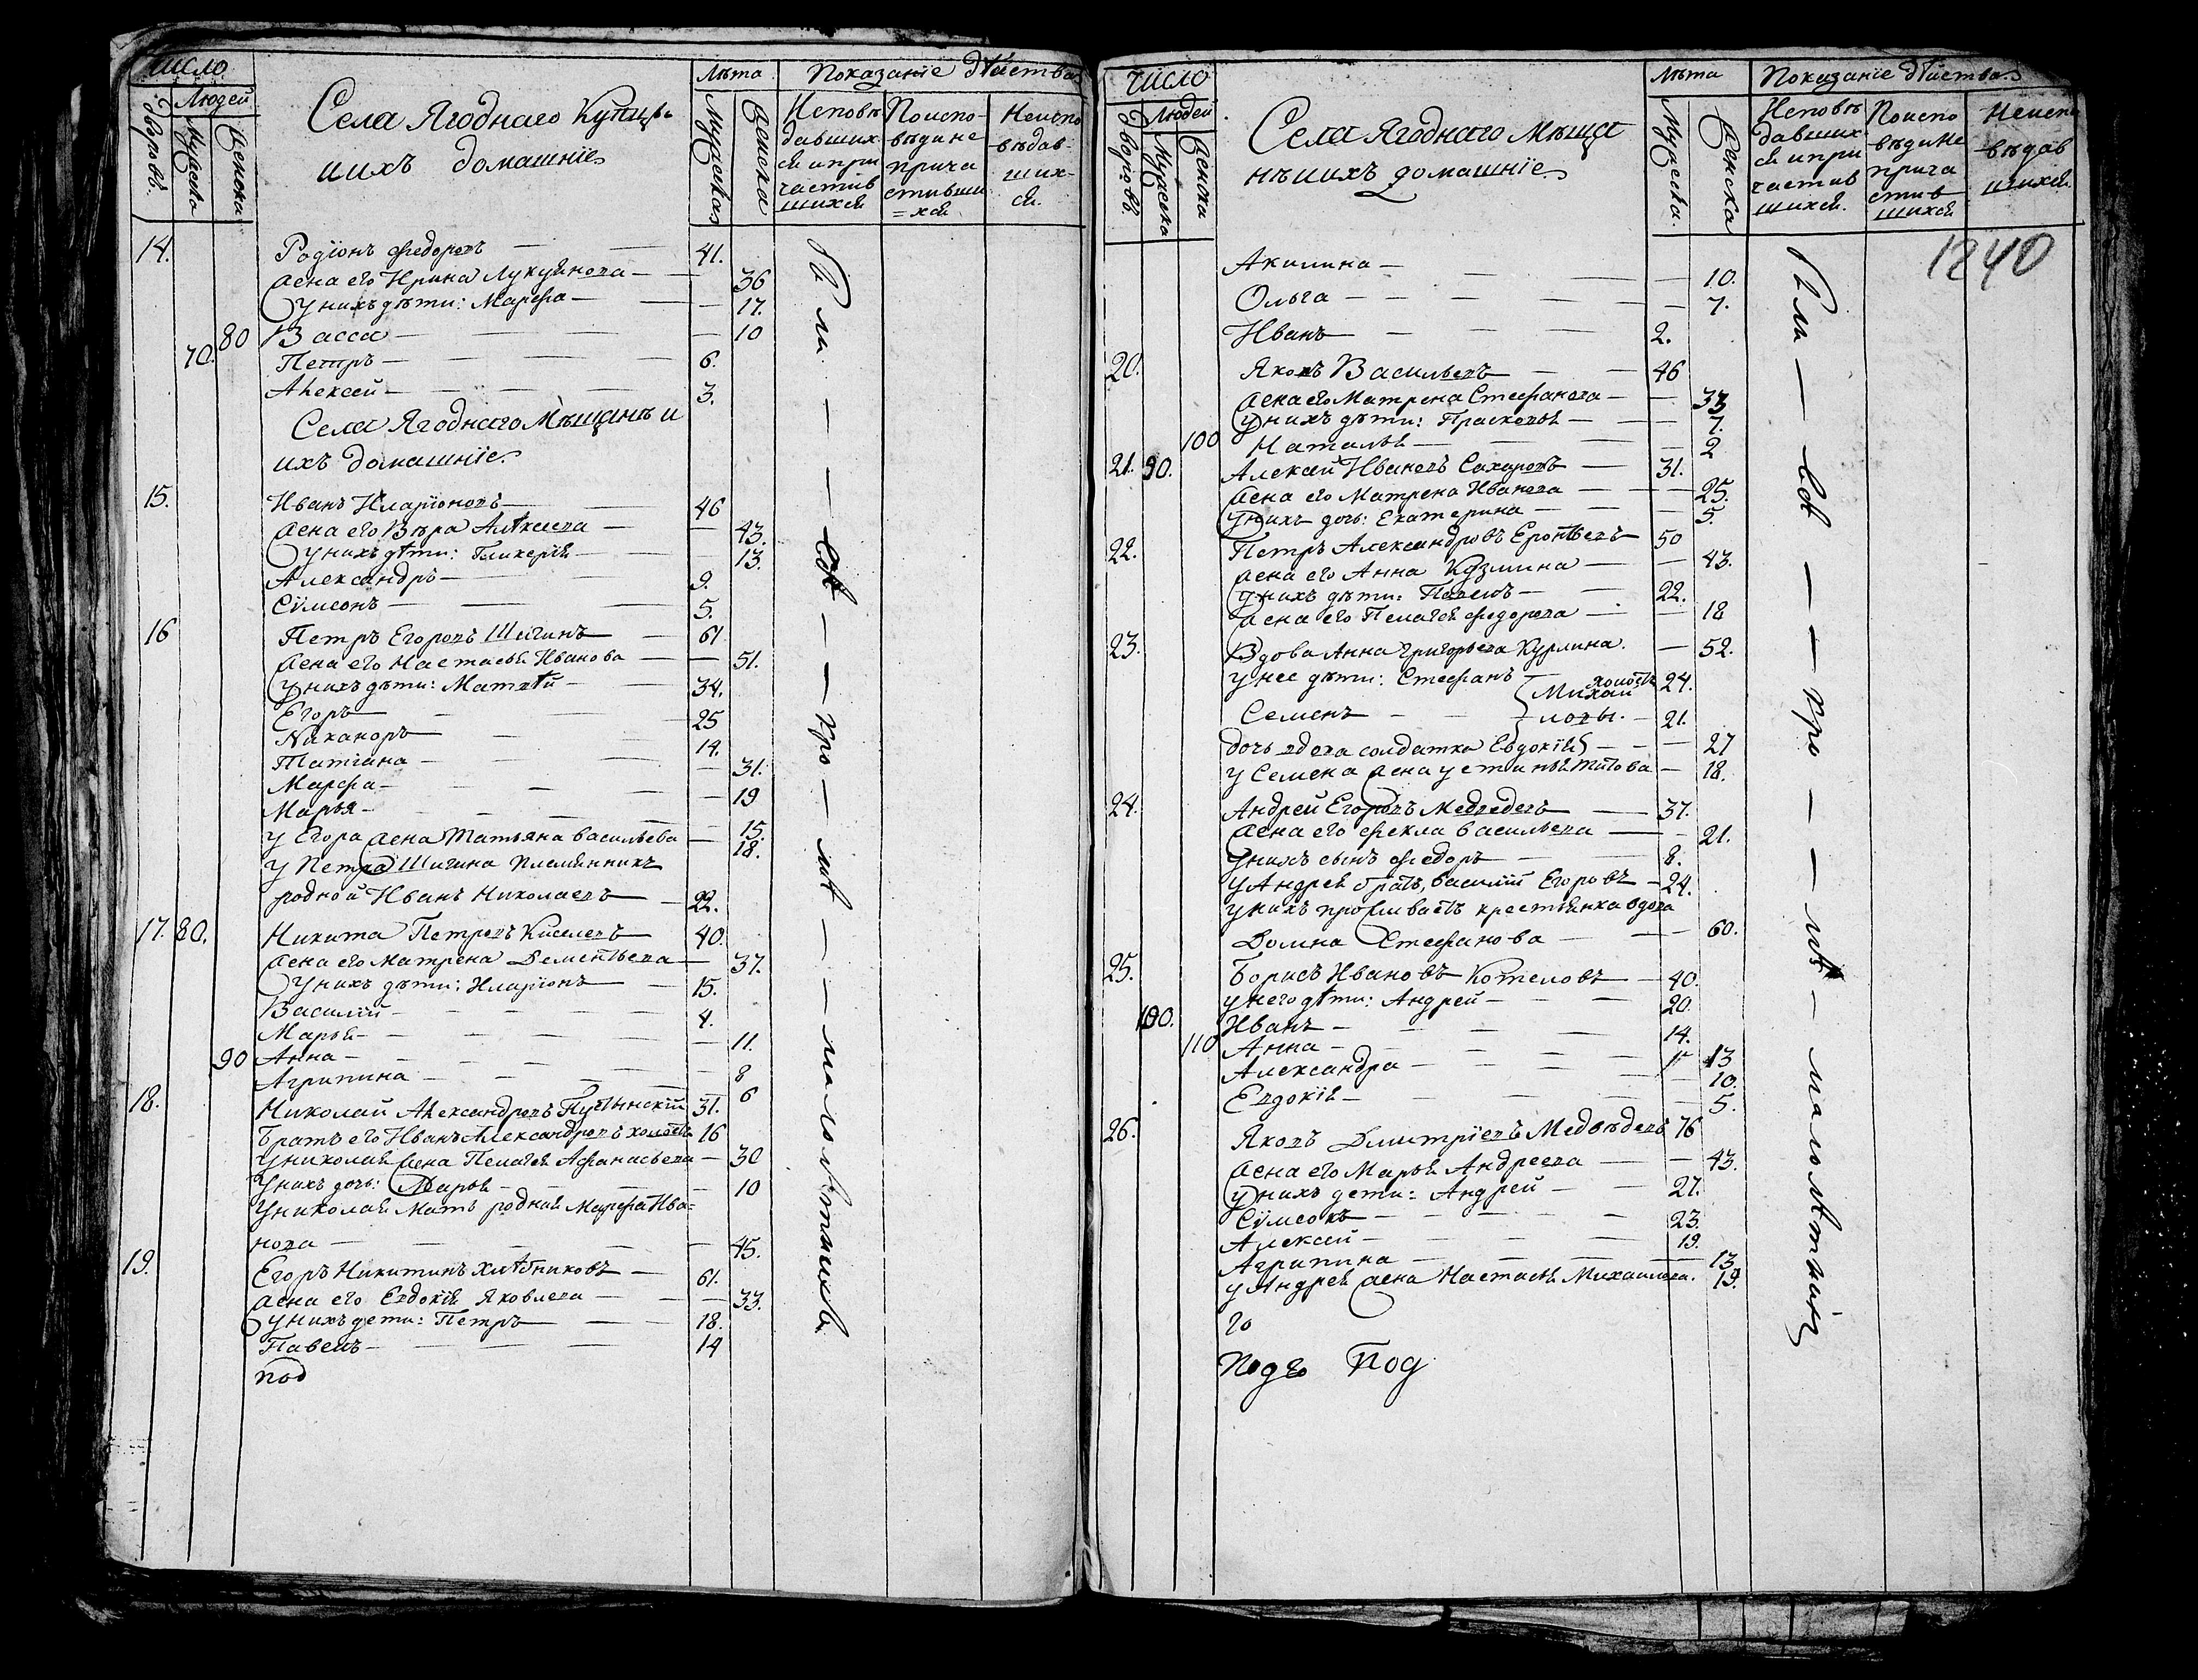 Число
Людей
Дворовъ.
Мужеска
Женска
Села Ягоднаго Купцы
и ихъ домашніе
Лѣта
Мужеска
Женска
Показаніе дѣйства
Исповѣ
давших
ся и при
частив
шихся
По испо-
вѣди не
прича
стивши
=хся
Неиспо
-вѣдав-
ших-
ся.
14. Родіонъ Федоровъ — — 41.
жена его Ирина Лукуянова — — 36
у нихъ дѣти: Марфа — — 17.
80 Васса — — 10
70. Петръ — — 6.
Алексей — — 3.
Села Ягоднаго Мѣщанъ и
ихъ домашніе.
15. Иванъ Иларіоновъ — 46
жена его Вѣра Алѣксеева — — 43.
у нихъ дѣти: Гликерія — — 13.
Александръ — — 9.
Сімеонъ — — 5.
16 Петръ Егоровъ Шигинъ — 61
жена его Настасья Иванова — — 51.
у нихъ дѣти: Матвѣй — — 34.
Егоръ — — 25
Никаноръ — — 14.
Татіана — — 31.
Марфа — — 19
Марья — — 15.
у Егора жена Татьяна Васильева — 18.
у Петра Шигина племянникъ
родной Иванъ Николаевъ — 22.
17. 80. Никита Петровъ Киселевъ — 40.
жена его Матрена Дементьева — 37.
у нихъ дѣти: Иларіонъ — 15.
Василій — — 4.
Марья — — 11.
90 Анна — — 8
Агрипина — — 6
18. Николай Александровъ Пустынскій 31.
братъ его Иванъ Александровъ холостъ 16
у Николая жена Пелагея Афанасьева — 30
у нихъ дочь: Дарья — — 10
у Николая мать родная Марфа Ива=
нова — — 45.
19. Егоръ Никитинъ Хлѣбниковъ — 61.
жена его Евдокія Яковлева — — 33.
у нихъ дети: Петръ — — 18.
Павелъ — — 14
под
Вси — — всѣ — — кро — мѣ — — малолѣтныхъ
Число
Людей
Дворовъ.
Мужеска
Женска
Села Ягоднаго Мѣща
нѣ и ихъ домашніе
Лѣта
Мужеска.
Женска
Показаніе дѣйства.
Исповѣ
давших
ся и при
частив
шихся.
По испо
вѣди не
прича
стив
шихся
Неиспо
-вѣдав
шихся.
1840
Акилина — — 10.
Ольга — — 7.
Иванъ — — 2.
20. Яковъ Васильевъ — — 46
жена его Матрена Стефанова — — 33
у нихъ дѣти: Прасковья — — 7.
100 Наталья — — 2
21. 90. Алексей Ивановъ Сахаровъ — 31.
жена его Матрена Иванова — — 25.
у нихъ дочь: Екатерина — — 5.
22. Петръ Александровъ Ерофѣевъ 50
жена его Анна Козмина — — 43.
у нихъ дѣти: Павелъ — — 22.
жена его Пелагея Федорова — — 18
23. Вдова Анна Григорьева Курлина. — 52.
у нее дѣти: Стефанъ — холосты 24.
Михай
Семенъ — — ловы. — 21.
дочь вдова солдатка Евдокія — — 27
у Семена жена Устинья Титова — 18.
24. Андрей Егоровъ Медведевъ — 37.
жена его Фекла Васильева — — 21.
у нихъ сынъ Федоръ — — 8.
у Андрея братъ, Василій Егоровъ — 24.
у нихъ проживаетъ крестьянка вдова
Домна Стефанова — — 60.
25. Борисъ Ивановъ Котеловъ — 40.
у него дѣти: Андрей — — 20.
100. Иванъ — — 14.
110 Анна — — 13
Александра — — 10.
Евдокія — — 5.
26. Яковъ Дмитріевъ Медвѣдевъ 76
жена его Марья Андреева — — 43.
у нихъ дети: Андрей — — 27.
Сімеонъ — — 23.
Алексей — — 19.
Агрипина — — 13
у Андрея жена Настасья Михайлова. 19.
го
подъ под
Вси — всѣ — — кро — — мѣ — малолѣтныхъ